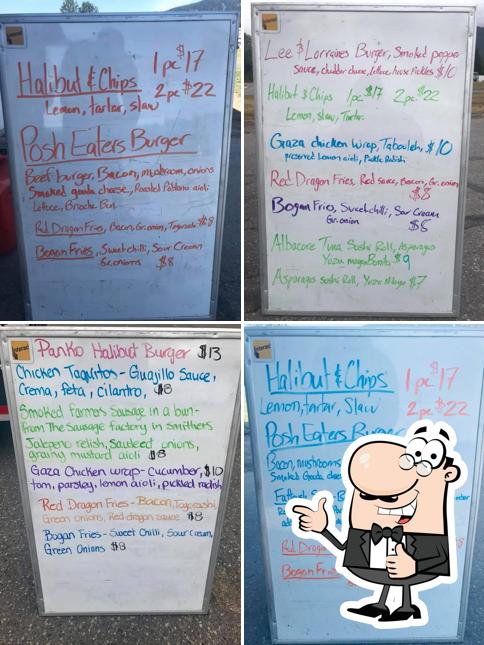 1pc $17
Halibut & Chips
2pc $22
Lemon, tartar, slaw
Posh Eaters Burger
Beef burger, Bacon, mushroom, onions
Smoked gouda cheese, Roasted Poblano aioli
Lettuce, Brioche Bun
Red Dragon Fries, Bacon, Gr.onion, $8
Bogan Fries, Sweet chilli, Sour Cream
Gr.onions $8
Lee & Lorraines Burger, Smoked pepper
Sauce, cheddar cheese, lettuce, house Pickles $10
Halibut & Chips 1pc $17 2pc $22
Lemon, slaw, Tartar
Gaza chicken Wrap, Tabouleh, $10
preserved Lemon aioli, Pickle Radish
Red Dragon Fries, Red sauce, Bacon, Gr.onion
$8
Bogan Fries, Sweet chilli, Sour Cream
Gr.onion $8
Albacore Tuna Sushi Roll, Asparagus
Yuzu mayo Bonito $9
Asparagus Sushi Roll, Yuzu Mayo $7
Panko Halibut Burger $13
Chicken Taquitos - Guajillo Sauce,
Crema, feta, cilantro, $8
Smoked Farmers Sausage in a bun-
from The Sausage factory in smithers
Jalapeno relish, Sauteed onions,
grainy mustard aioli $8
Gaza Chicken wrap - Cucumber, $10
tom, parsley, lemon aioli, pickled radish
Red Dragon Fries - Bacon, Togarashi
Green onions, Red dragon sauce $8
Bogan Fries - Sweet Chilli, Sour Cream,
Green Onions $8
Halibut & Chips 1pc $17
Lemon, tartar, Slaw 2pc $22
Posh Eaters Burger
Bacon, mushrooms
Smoked Gouda
Red Drago
Bogan Fries